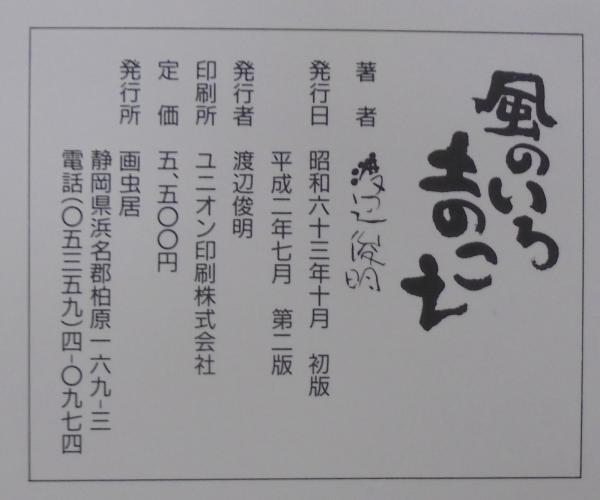 風のいろ
土のこえ
著者 渡辺俊明
発行日 昭和六十三年十月 初版
平成二年七月 第二版
発行者 渡辺俊明
印刷所 ユニオン印刷株式会社
定価 五、五〇〇円
発行所 画虫居
静岡県浜名郡柏原一六九-三
電話(〇五三五九)四-〇九七四